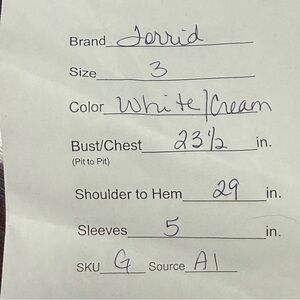 Brand Torrid
Size 3
Color White/Cream
Bust/Chest 23 1/2 in.
(Pit to Pit)
Shoulder to Hem 29 in.
Sleeves 5 in.
SKU G Source A1